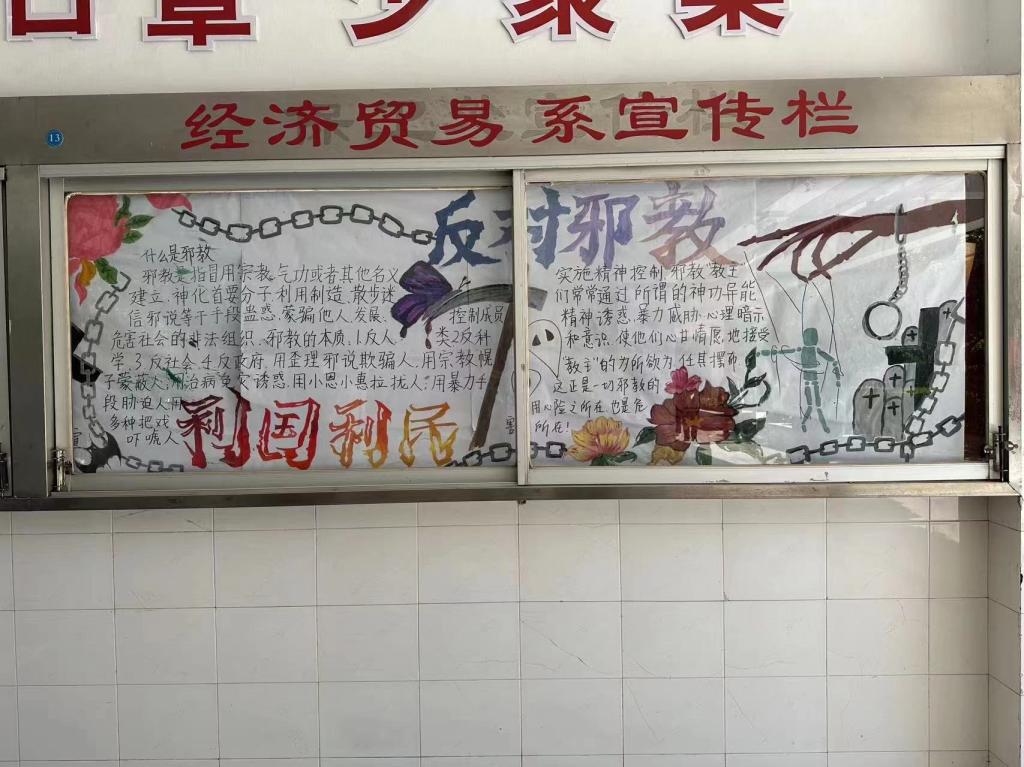 章 少 聚 集
13
经济贸易系宣传栏
反对邪教
什么是邪教
邪教是指冒用宗教、气功或者其他名义
建立、神化首要分子,利用制造、散步迷
信邪说等于手段蛊惑、蒙骗他人发展、控制成员
危害社会的非法组织、邪教的本质、1.反人类2反科
学、3反社会、4.反政府,用歪理邪说欺骗人、用宗教幌
子蒙蔽人、用治病免灾诱惑、用小恩小惠拉拢人、用暴力手
段胁迫人用
多种把戏
吓唬人
利国利民
实施精神控制,邪教"教主
们常常通过所谓的神功异能
精神诱惑、暴力威胁、心理暗示
和意识,使他们心甘情愿地接受
"教主"的为所欲为、任其摆布
这正是一切邪教的
用心险之所在也是危
所在!